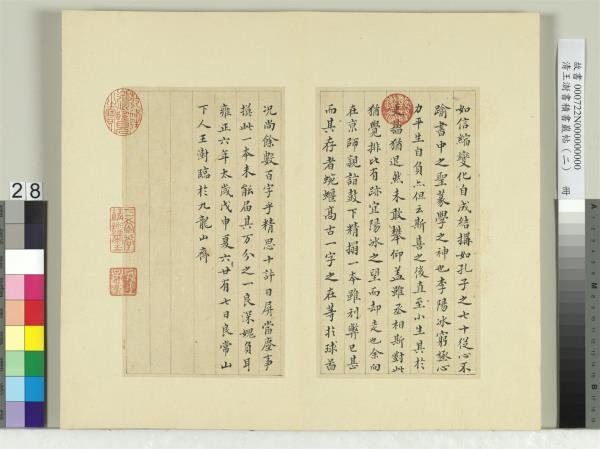 如信縮變化自成結搆如孔子之七十從心不
踰書中之聖篆學之神也李陽冰窮極心
力平生自負亦但云斯喜之後直至小生其於
猶退然未敢攀仰蓋雖丞相斯對此
猶覺排比有跡宜陽冰之望而却走也余向
在京師親詣鼓下精搨一本雖刓弊已甚
而其存者蜿蟺高古一字之在等於球圖
況尚餘數百字乎精思十許日屏當塵事
摸此一本未能屆其万分之一良深媿負耳
雍正六年太歲戊申夏六廿有七日良常山
下人王澍臨於九龍山齋
故書 000722N000000000
清王澍書積書巖帖(二) 冊
28